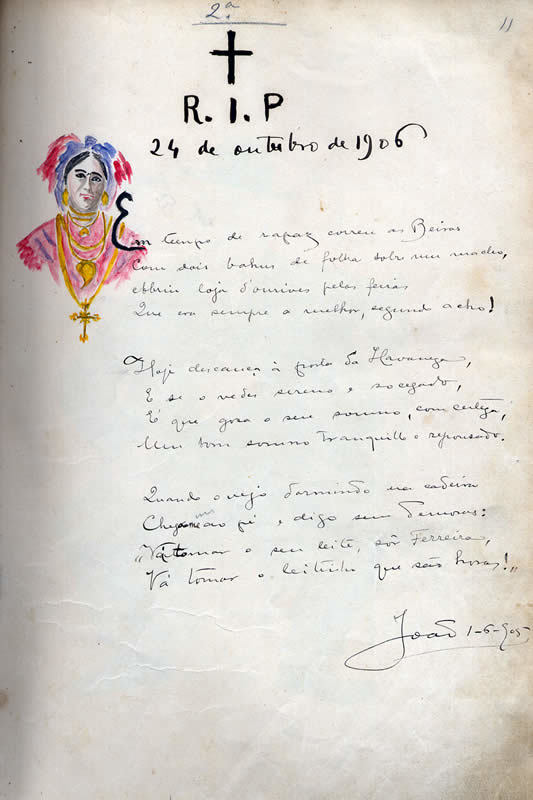 2.ª
11
R.I.P
24 de outubro de 1906
Em tempo de rapaz correu as Beiras
Com dois bahus de folha sobre um macho,
Abbriu loja d'ourives pelas feiras
Que era sempre a melhor, segund acho!
Hoje descança à porta da Havaneza,
E se o vedes sereno e socegado,
É que gosa o seu somno, com certeza,
Um bom somno tranquillo e repousado.
Quando o vejo dormindo na cadeira
Chego-me ao pé e digo sem demoras:
"Vá tomar o seu leite, sôr Ferreira,
Vá tomar o leitinho que são horas!"
João 1-6-905